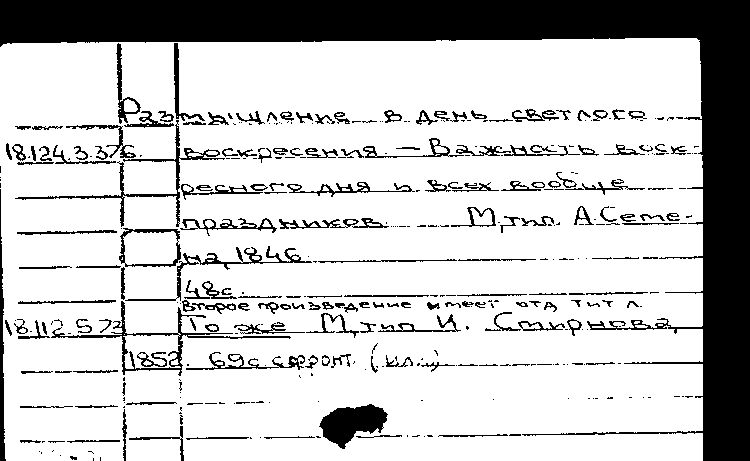 Размышление в день светлого
18.124.3.376. воскресения. — Важность воск-
ресного дня и всех вообще
праздников. М, тип. А. Семе-
на, 1846.
48с.
Второе произведение имеет отд. тит. л.
18.112.5.73 То же М, тип И. Смирнова,
1852. 69с с фронт. (ил.)